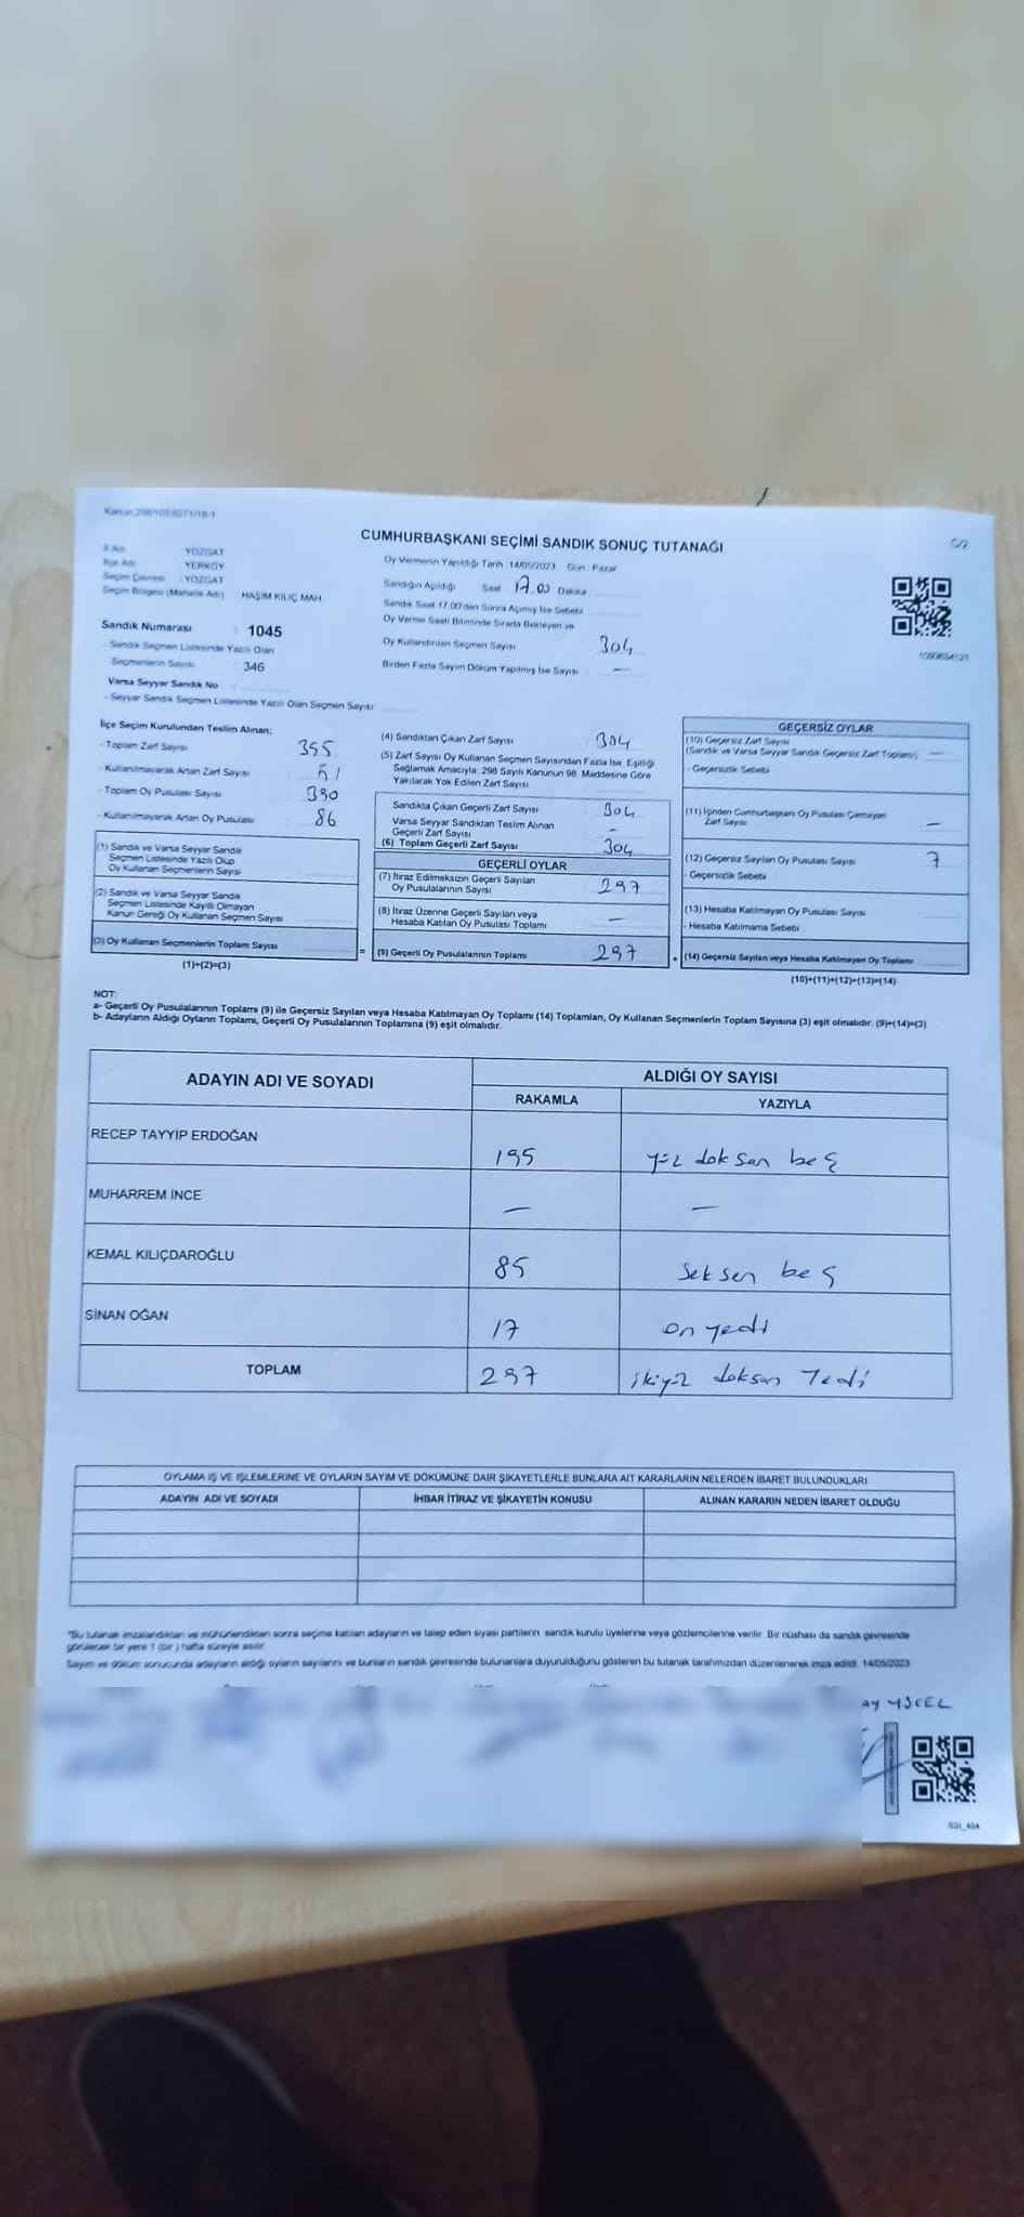 CUMHURBAŞKANI SEÇİMİ SANDIK SONUÇ TUTANAĞI
İl Adı YOZGAT
İlçe Adı YERKÖY
Seçim Çevresi : YOZGAT
Seçim Bölgesi (Mahalle Adı) HAŞİM KILIÇ MAH
Sandık Numarası : 1045
- Sandık Seçmen Listesinde Yazılı Olan
Seçmenlerin Sayısı 346
Varsa Seyyar Sandık No
- Seyyar Sandık Seçmen Listesinde Yazılı Olan Seçmen Sayısı
Oy Vermenin Yapıldığı Tarih : 14/05/2023 Gün : Pazar
Sandığın Açıldığı Saat 17.00 Dakika
Sandık Saat 17.00'den Sonra Açılmış İse Sebebi
Oy Verme Saati Bitiminde Sırada Bekleyen ve
Oy Kullandırılan Seçmen Sayısı 304
Birden Fazla Sayım Döküm Yapılmış İse Sayısı —
İlçe Seçim Kurulundan Teslim Alınan;
- Toplam Zarf Sayısı 355
- Kullanılmayarak Artan Zarf Sayısı 51
- Toplam Oy Pusulası Sayısı 390
- Kullanılmayarak Artan Oy Pusulası 86
(1) Sandık ve Varsa Seyyar Sandık
Seçmen Listesinde Yazılı Olup
Oy Kullanan Seçmenlerin Sayısı
(2) Sandık ve Varsa Seyyar Sandık
Seçmen Listesinde Kayıtlı Olmayan
Kanun Gereği Oy Kullanan Seçmen Sayısı
(3) Oy Kullanan Seçmenlerin Toplam Sayısı
(1)+(2)=(3)
=
(4) Sandıktan Çıkan Zarf Sayısı 304
(5) Zarf Sayısı Oy Kullanan Seçmen Sayısından Fazla İse, Eşitliği
Sağlamak Amacıyla, 298 Sayılı Kanunun 98. Maddesine Göre
Yakılarak Yok Edilen Zarf Sayısı
Sandıkta Çıkan Geçerli Zarf Sayısı 304
Varsa Seyyar Sandıktan Teslim Alınan
Geçerli Zarf Sayısı —
(6) Toplam Geçerli Zarf Sayısı 304
GEÇERLİ OYLAR
(7) İtiraz Edilmeksizin Geçerli Sayılan
Oy Pusulalarının Sayısı 297
(8) İtiraz Üzerine Geçerli Sayılan veya
Hesaba Katılan Oy Pusulası Toplamı —
(9) Geçerli Oy Pusulalarının Toplamı 297
+
GEÇERSİZ OYLAR
(10) Geçersiz Zarf Sayısı
(Sandık ve Varsa Seyyar Sandık Geçersiz Zarf Toplamı) —
- Geçersizlik Sebebi
(11) İçinden Cumhurbaşkanı Oy Pusulası Çıkmayan
Zarf Sayısı —
(12) Geçersiz Sayılan Oy Pusulası Sayısı 7
- Geçersizlik Sebebi
(13) Hesaba Katılmayan Oy Pusulası Sayısı
- Hesaba Katılmama Sebebi
(14) Geçersiz Sayılan veya Hesaba Katılmayan Oy Toplamı
(10)+(11)+(12)+(13)=(14)
NOT:
a- Geçerli Oy Pusulalarının Toplamı (9) ile Geçersiz Sayılan veya Hesaba Katılmayan Oy Toplamı (14) Toplamları, Oy Kullanan Seçmenlerin Toplam Sayısına (3) eşit olmalıdır. (9)+(14)=(3)
b- Adayların Aldığı Oyların Toplamı, Geçerli Oy Pusulalarının Toplamına (9) eşit olmalıdır.
ADAYIN ADI VE SOYADI ALDIĞI OY SAYISI
RAKAMLA YAZIYLA
RECEP TAYYİP ERDOĞAN 195 yüz doksan beş
MUHARREM İNCE — —
KEMAL KILIÇDAROĞLU 85 seksen beş
SİNAN OĞAN 17 on yedi
TOPLAM 297 ikiyüz doksan Yedi
OYLAMA İŞ VE İŞLEMLERİNE VE OYLARIN SAYIM VE DÖKÜMÜNE DAİR ŞİKAYETLERLE BUNLARA AİT KARARLARIN NELERDEN İBARET BULUNDUKLARI
ADAYIN ADI VE SOYADI İHBAR İTİRAZ VE ŞİKAYETİN KONUSU ALINAN KARARIN NEDEN İBARET OLDUĞU
"Bu tutanak imzalandıktan ve mühürlendikten sonra seçime katılan adayların ve talep eden siyasi partilerin sandık kurulu üyelerine veya gözlemcilerine verilir. Bir nüshası da sandık çevresinde
görülecek bir yere 1 (bir) hafta süreyle asılır.
Sayım ve döküm sonucunda adayların aldığı oyların sayılarını ve bunların sandık çevresinde bulunanlara duyurulduğunu gösteren bu tutanak tarafımızdan düzenlenerek imza edildi. 14/05/2023
ay YÜCEL